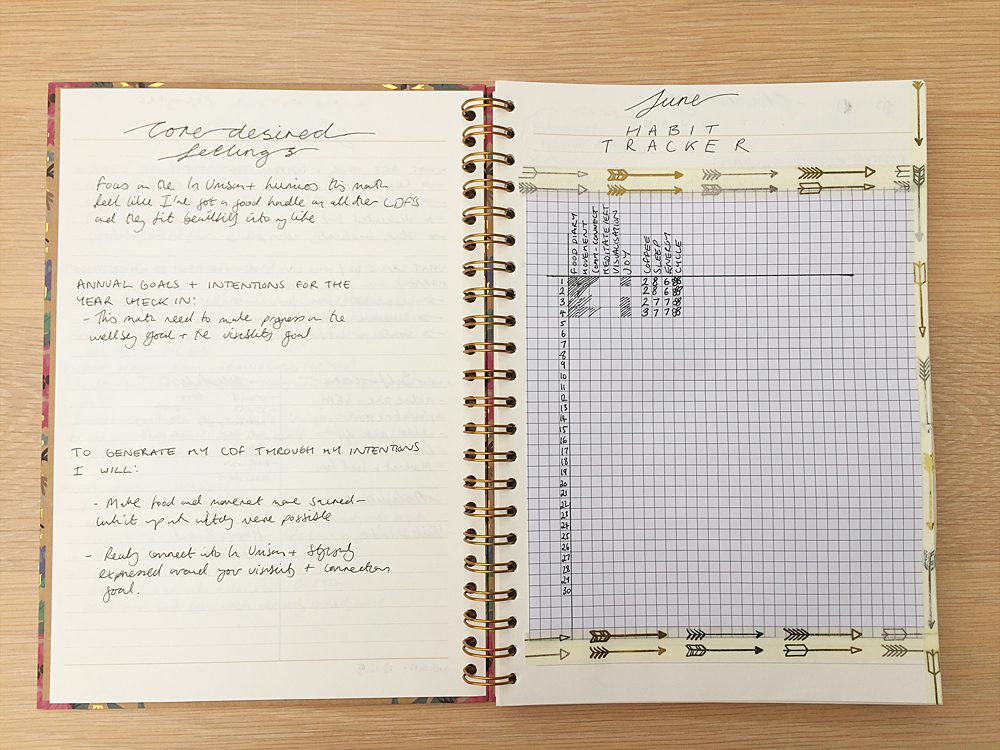 Core desired
feelings
Focus on the In Unison + luminous this month
feel like I've got a good handle on all other CDFS
and they fit beautifully into my life
ANNUAL GOALS + INTENTIONS FOR THE
YEAR CHECK IN:
- This month need to make progress on the
wellbeing goal + the visibility goal
TO GENERATE MY CDF THROUGH MY INTENTIONS
I WILL:
- Make food and movement more sacred -
up at where possible
- Really connect into In Unison + strongly
expressed around your visibility + connection
goal.
June
HABIT
TRACKER
FOOD DIARY
MOVEMENT
COMM-CONNECT
MEDITATE/
VISUALISATION
JOY
COFFEE
SLEEP
ENERGY
CYCLE
1 2 8 6
2 2 8 6
3 2 7 7
4 3 7 7
5
6
7
8
9
10
11
12
13
14
15
16
17
18
19
20
21
22
23
24
25
26
27
28
29
30